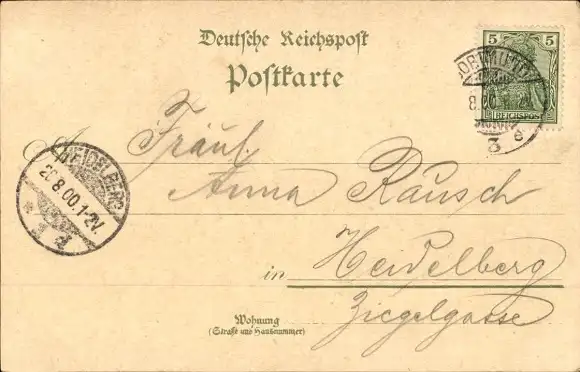 Deutsche Reichspost
Postkarte
5 5
REICHSPOST
DORTMUND
3 e
HEIDELBERG
20.8.00.1-2V.
Fräul.
Anna Rausch
in Heidelberg
Wohnung
(Straße und Hausnummer)
Ziegelgasse